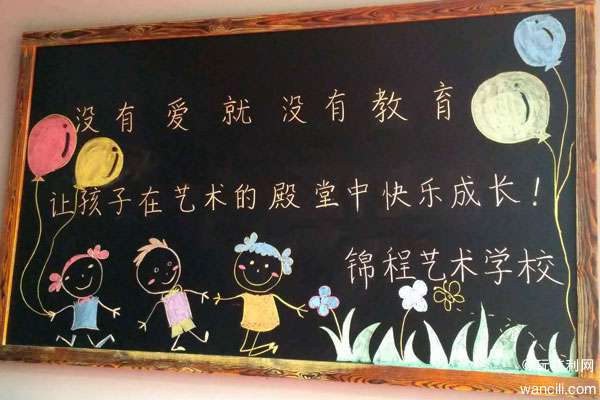 没有爱就没有教育
让孩子在艺术的殿堂中快乐成长!
锦程艺术学校
wancili.com